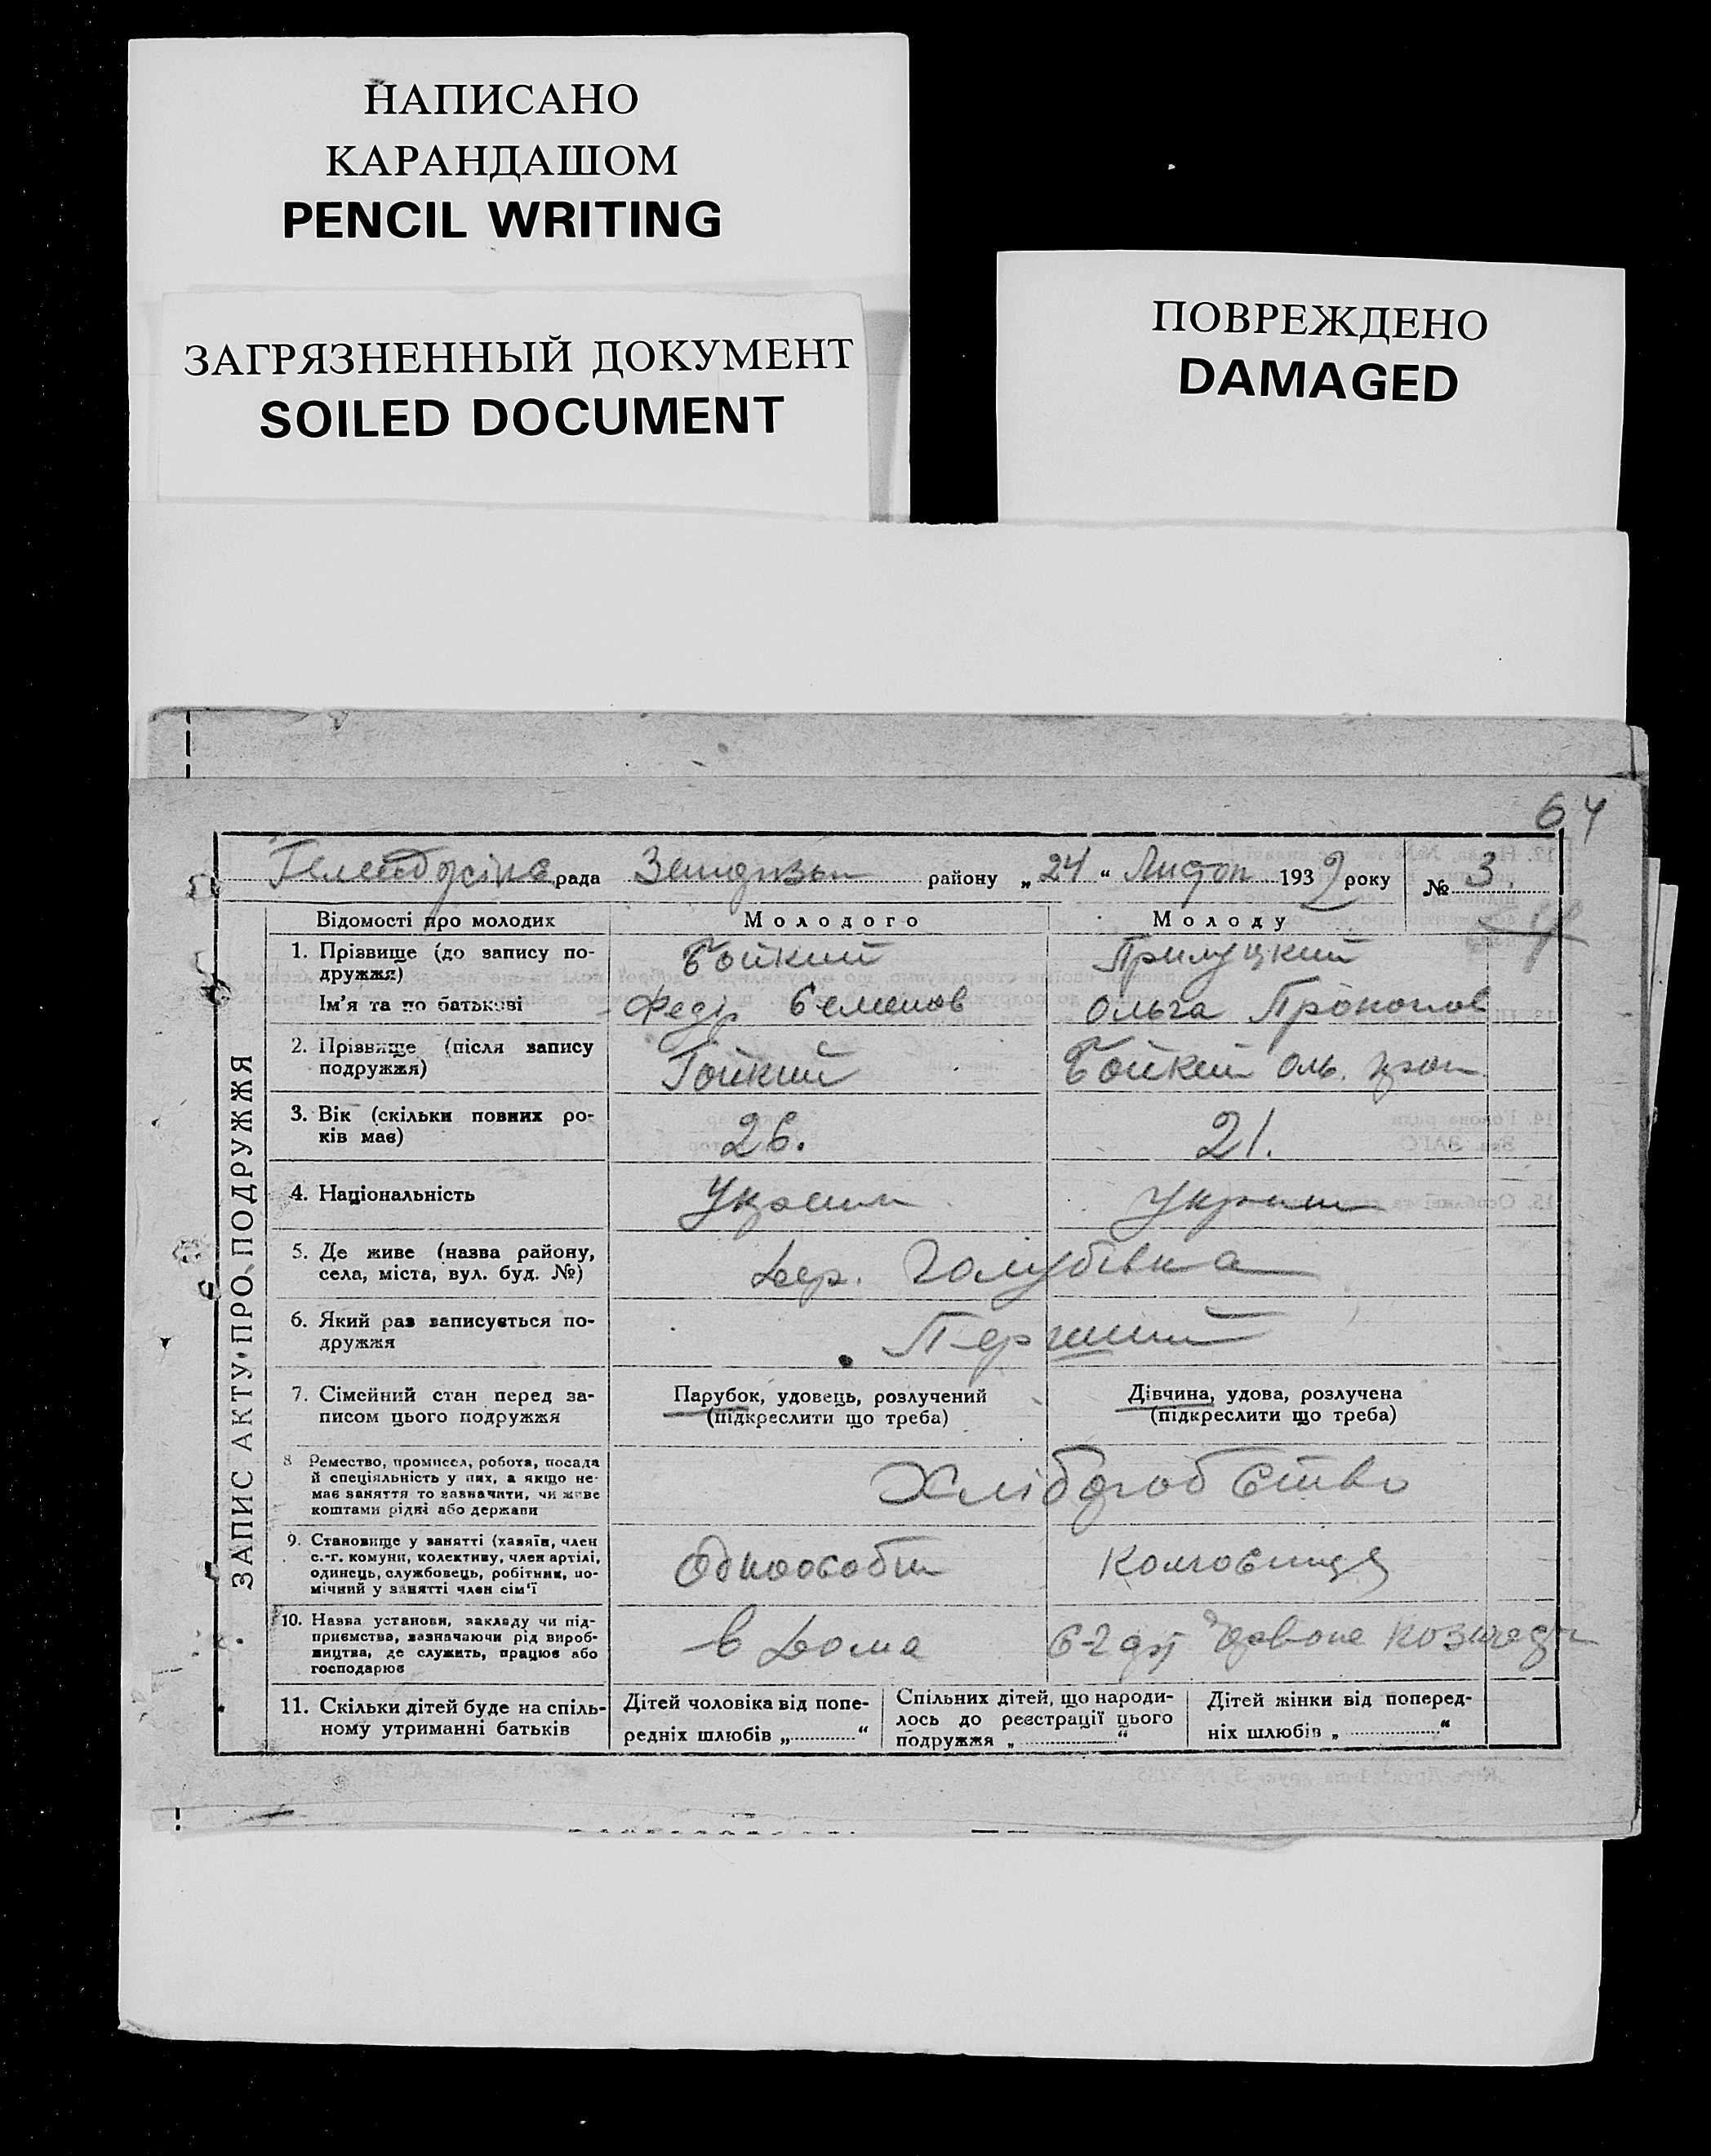 НАПИСАНО
КАРАНДАШОМ
PENCIL WRITING
ЗАГРЯЗНЕННЫЙ ДОКУМЕНТ
SOILED DOCUMENT
ПОВРЕЖДЕНО
DAMAGED
64
рада району „24“ Листоп 1932 року № 3.
ЗАПИС АКТУ ПРО ПОДРУЖЖЯ
Відомості про молодих Молодого Молоду
1. Прізвище (до запису по-
дружжя) Бойкий Прилуцкий
Ім'я та по батькові Федір Семенов Ольга Прокопов
2. Прізвище (після запису
подружжя) Бойкий Оль. прок
3. Вік (скільки повних ро-
ків має) 26. 21.
4. Національність Украин Украин
5. Де живе (назва району,
села, міста, вул. буд. №) Дер. Голубівка
6. Який раз записується по-
дружжя Перший
7. Сімейний стан перед за-
писом цього подружжя
Парубок, удовець, розлучений
(підкреслити що треба)
Дівчина, удова, розлучена
(підкреслити що треба)
8 Ремество, промисел, робота, посада
й спеціяльність у них, а якщо не-
має заняття то зазначити, чи живе
коштами рідні або держави
Хліборобство
9. Становище у занятті (хазяїн, член
с.-г. комуни, колективу, член артілі,
одинець, службовець, робітник, по-
мічний у занятті член сім'ї
Одноособн
10. Назва установи, закладу чи під-
приємства, зазначаючи рід вироб-
ництва, де служить, працює або
господарює
в Дома
11. Скільки дітей буде на спіль-
ному утриманні батьків
Дітей чоловіка від попе-
редніх шлюбів „ “
Спільних дітей, що народи-
лось до реєстрації цього
подружжя „ “
Дітей жінки від поперед-
ніх шлюбів „ “